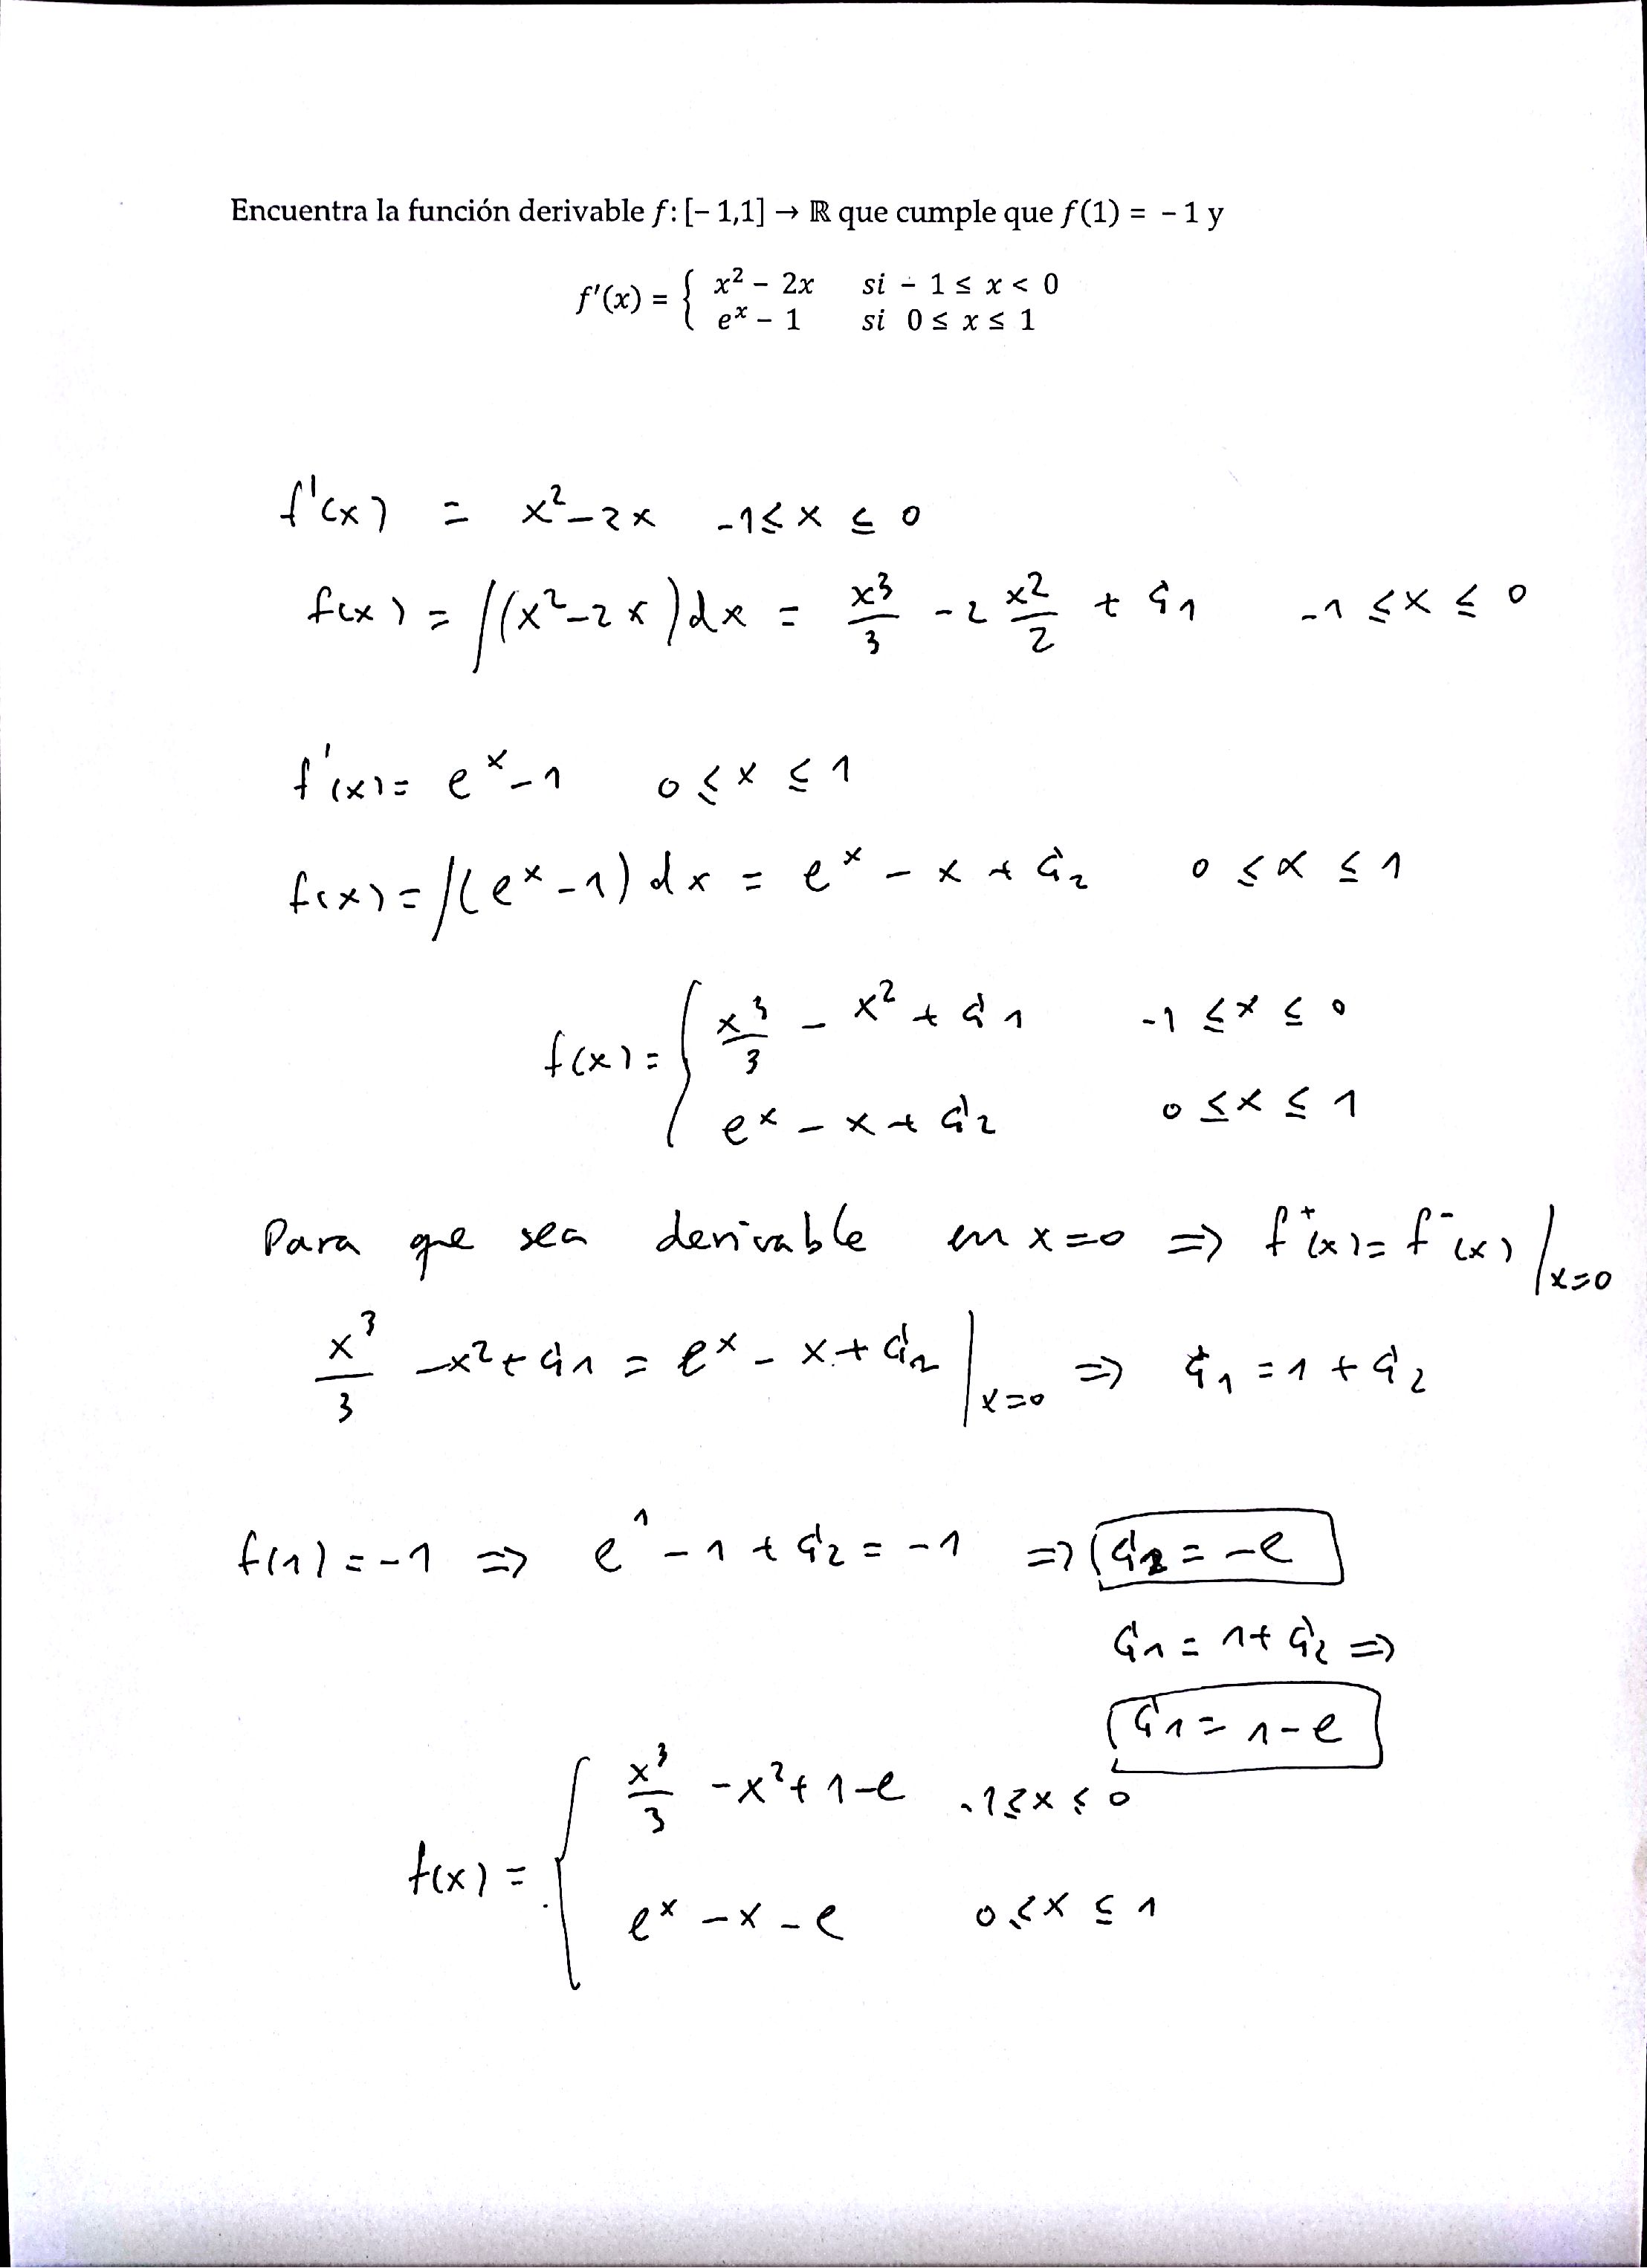 Encuentra la función derivable f: [− 1,1] → ℝ que cumple que f(1) = − 1 y
f'(x) = { x² − 2x si − 1 ≤ x < 0
eˣ − 1 si 0 ≤ x ≤ 1
f'(x) = x² − 2x -1 ≤ x ≤ 0
f(x) = ∫(x² − 2x)dx = x³/3 − 2 x²/2 + C₁ -1 ≤ x ≤ 0
f'(x) = eˣ − 1 0 ≤ x ≤ 1
f(x) = ∫(eˣ − 1)dx = eˣ − x + C₂ 0 ≤ x ≤ 1
f(x) = { x³/3 − x² + C₁ -1 ≤ x ≤ 0
eˣ − x + C₂ 0 ≤ x ≤ 1
Para que sea derivable en x=0 ⇒ f⁺(x) = f⁻(x) |x=0
x³/3 − x² + C₁ = eˣ − x + C₂ |x=0 ⇒ C₁ = 1 + C₂
f(1) = -1 ⇒ e¹ − 1 + C₂ = -1 ⇒ C₂ = -e
C₁ = 1 + C₂ ⇒
C₁ = 1 − e
f(x) = { x³/3 − x² + 1 − e -1 ≤ x ≤ 0
eˣ − x − e 0 ≤ x ≤ 1